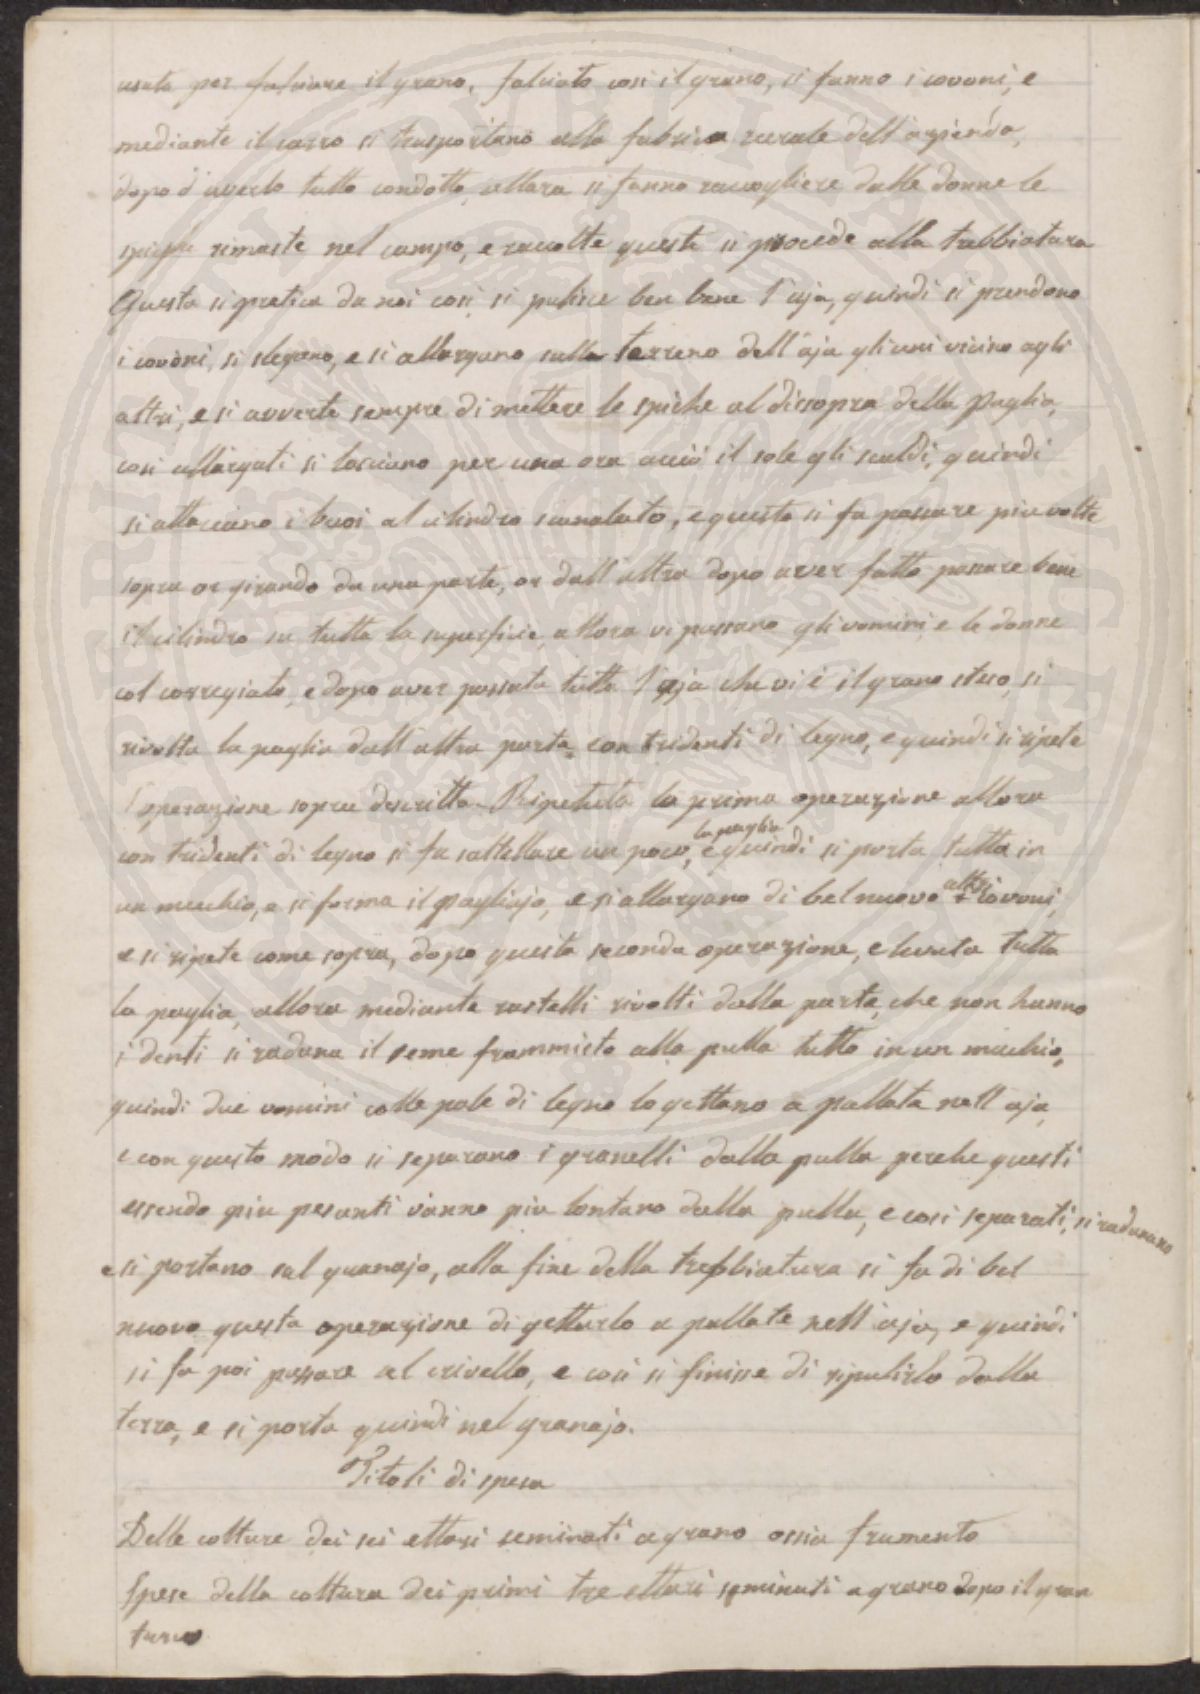 usata per falciare il grano. falciato così il grano, si fanno i covoni, e
mediante il carro si trasportano alla fabrica rurale dell'azienda,
dopo d'averlo tutto condotto, allora si fanno raccogliere dalle donne le
spighe rimaste nel campo, e raccolte queste si procede alla trebbiatura
Questa si pratica da noi così si pulisce ben bene l'aja, quindi si prendono
i covoni, si slegano, e si allargano sullo terreno dell'aja gli uni vicino agli
altri, e si avverte sempre di mettere le spiche al dissopra della paglia,
così allargati si lasciano per una ora acciò il sole gli scaldi, quindi
si attaccano i buoi al cilindro scanalato, e questo si fa passare più volte
sopra or girando da una parte, or dall'altra dopo aver fatto passare bene
il cilindro su tutta la superficie, allora vi passano gli uomini e le donne
col corregiato, e dopo aver passata tutta l'aja che vi è il grano steso, si
rivolta la paglia dall'altra parte con tridenti di legno, e quindi si ripete
l'operazione sopra descritta. Ripetuta la prima operazione allora
con tridenti di legno si fa saltellare un poco, la paglia e quindi si porta tutta in
un mucchio, e si forma il pagliajo, e si allargano di bel nuovo altri covoni,
e si ripete come sopra, dopo questa seconda operazione, e levata tutta
la paglia, allora mediante rastelli rivolti dalla parte, che non hanno
i denti si raduna il seme frammisto alla pulla tutto in un mucchio,
quindi due uomini colle pale di legno lo gettano a pallata nell'aja,
e con questo modo si separano i granelli dalla pulla perche questi
essendo più pesanti vanno più lontano dalla pulla, e così separati, si radunano
e si portano sul granajo, alla fine della trebbiatura si fa di bel
nuovo questa operazione di gettarlo a pallate nell'aja, e quindi
si fa poi passare al crivello, e così si finisce di ripulirlo dalla
terra, e si porta quindi nel granajo.
Titoli di spesa
Delle colture dei sei ettari seminati a grano ossia frumento
Spese della coltura dei primi tre ettari seminati a grano dopo il gran
turco